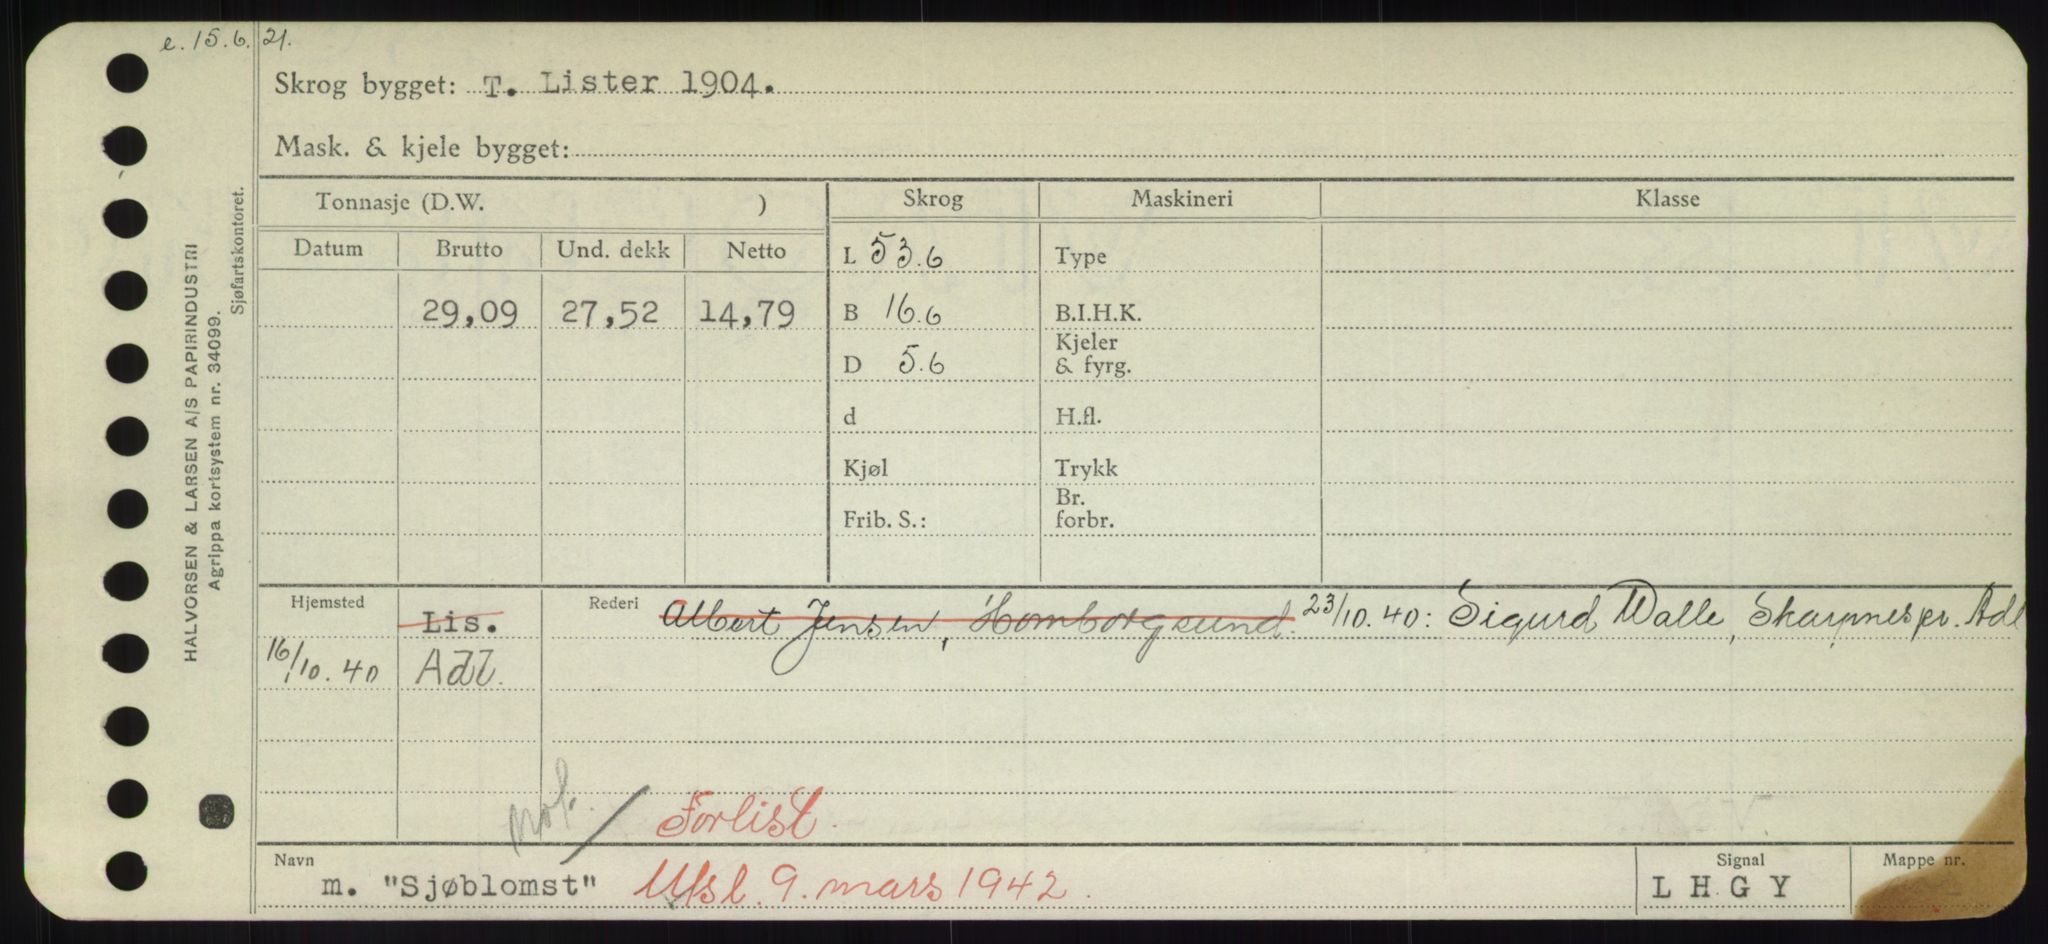 e. 15.6.21.
Skrog bygget: T. Lister 1904.
Mask. & kjele bygget:
Tonnasje (D.W. ) Skrog Maskineri Klasse
Datum Brutto Und. dekk Netto L 53.6 Type
29,09 27,52 14,79 B 16.6 B.I.H.K.
D 5.6 Kjeler & fyrg.
d H.fl.
Kjøl Trykk
Frib. S.: Br. forbr.
Hjemsted Lis. Rederi Albert Jensen, Homborgsund. 23/10.40: Sigurd Walle, Skarpnes pr. Adl
16/10.40 Adl.
Forlist.
Navn m. "Sjøblomst" Utsl. 9. mars 1942. Signal L H G Y Mappe nr.
HALVORSEN & LARSEN A/S PAPIRINDUSTRI
Agrippa kortsystem nr. 34099.
Sjøfartskontoret.